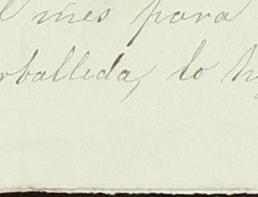 mes para
rballeda, lo h